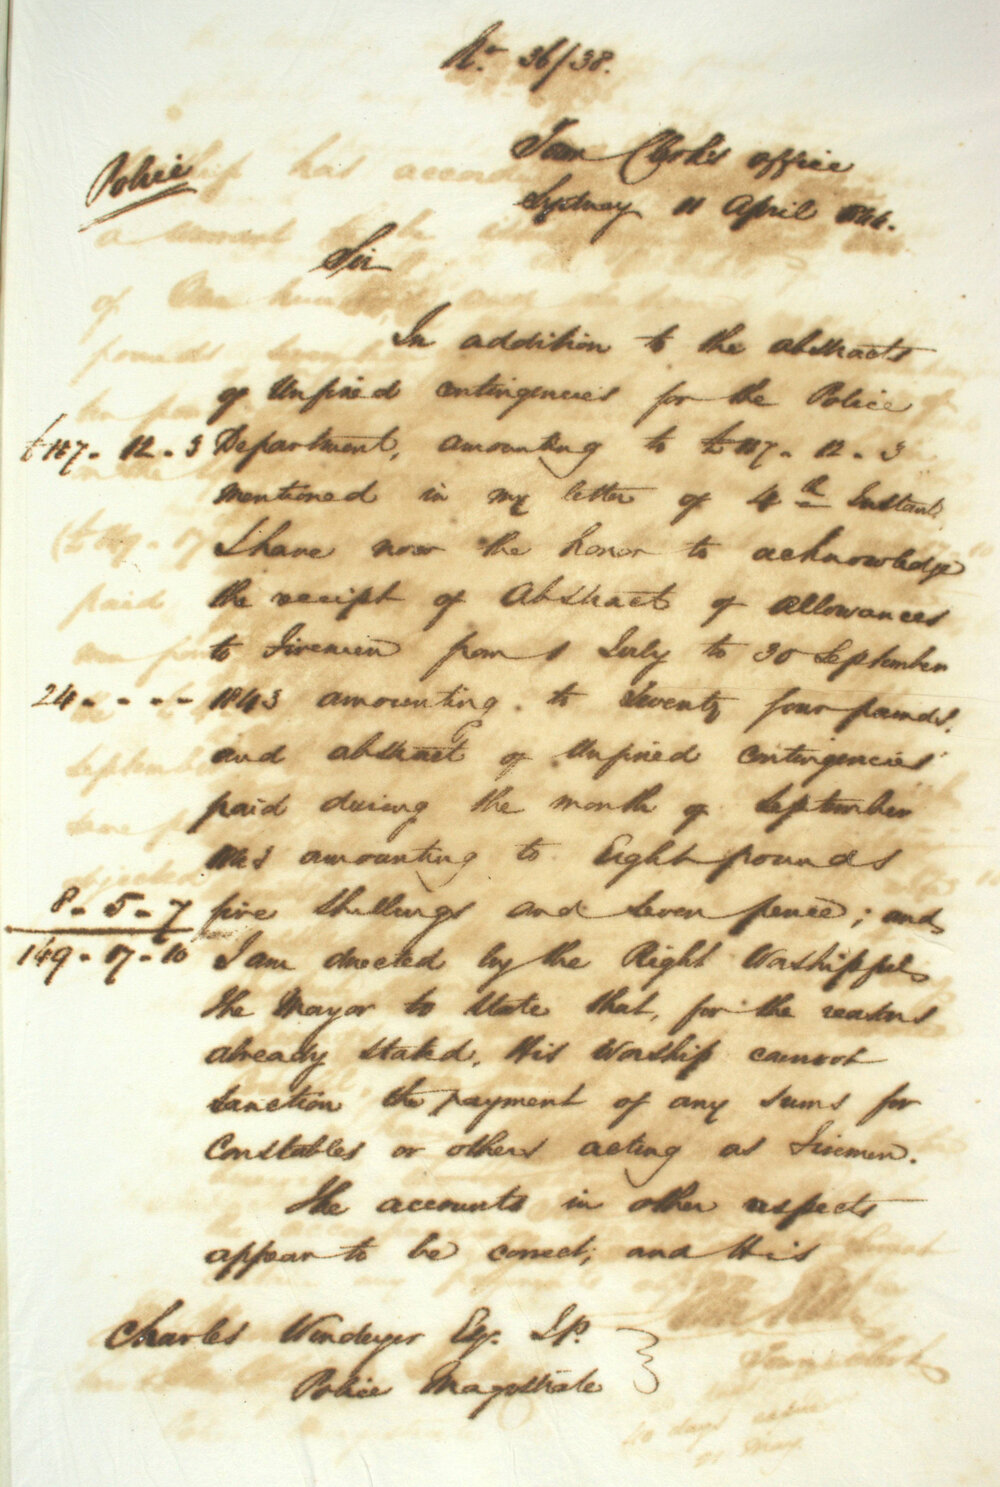 No. 36/38.
Town Clerk's office
Police
Sydney 11 April 1844.
Sir
In addition to the abstracts
of Unfixed contingencies for the Police
£117 - 12 - 3 Department, amounting to £117 - 12 - 3
mentioned in my letter of 4th Instant,
I have now the honor to acknowledge
the receipt of Abstract of allowances
to Firemen from 1 July to 30 September
24 - - - - 1843 amounting to twenty four pounds,
and abstract of Unfixed contingencies
paid during the month of September
1843 amounting to Eight pounds
8 - 5 - 7 five shillings and seven pence; and
149 - 17 - 10 I am directed by the Right Worshipful
the Mayor to state that, for the reasons
already stated, His Worship cannot
sanction the payment of any sums for
Constables or others acting as Firemen.
The accounts in other respects
appear to be correct; and His
Charles Windeyer Esq. J.P.
Police Magistrate